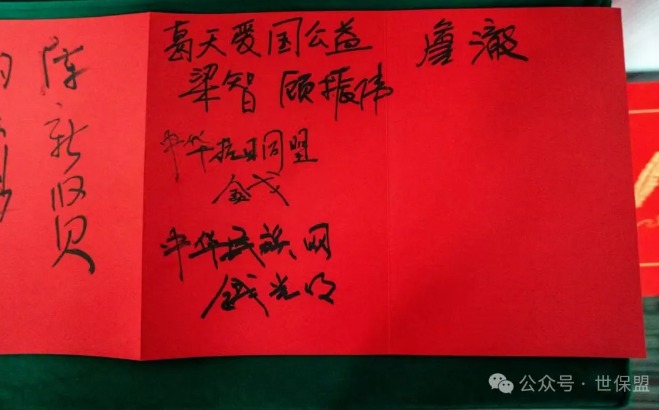 陈新贤
葛天爱国公益
梁智 顾振伟
中华抗日同盟
金戈
中华民族网
钱光明
唐澈
公众号·世保盟